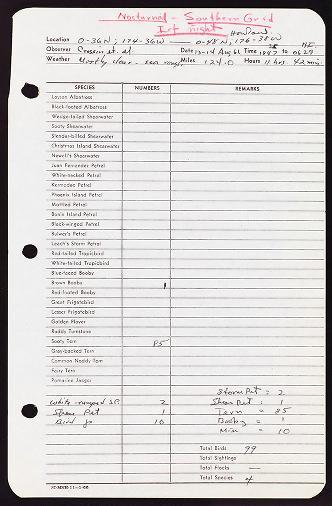 Nocturnal - Southern Grid
1st night
Howland
Location 0-36N; 174-36W — 0-48N; 176-38W
Observer et. al. Date 13-14 Aug 61 Time 1847 to 0629
Weather Mostly clear - sea rough Miles 124.0 Hours 11 hrs. 42 min.
SPECIES NUMBERS REMARKS
Laysan Albatross
Black-footed Albatross
Wedge-tailed Shearwater
Sooty Shearwater
Slender-billed Shearwater
Christmas Island Shearwater
Newell's Shearwater
Juan Fernandez Petrel
White-necked Petrel
Kermadec Petrel
Phoenix Island Petrel
Mottled Petrel
Bonin Island Petrel
Black-winged Petrel
Bulwer's Petrel
Leach's Storm Petrel
Red-tailed Tropicbird
White-tailed Tropicbird
Blue-faced Booby
Brown Booby 1
Red-footed Booby
Great Frigatebird
Lesser Frigatebird
Golden Plover
Ruddy Turnstone
Sooty Tern 85
Gray-backed Tern
Common Noddy Tern
Fairy Tern
Pomarine Jaeger
White-rumped S.P. 2
Shear Pet 1
Bird sp 10
Storm Pet : 2
Shear Pet : 1
Tern = 85
Booby = 1
Misc = 10
Total Birds 99
Total Sightings
Total Flocks —
Total Species 4